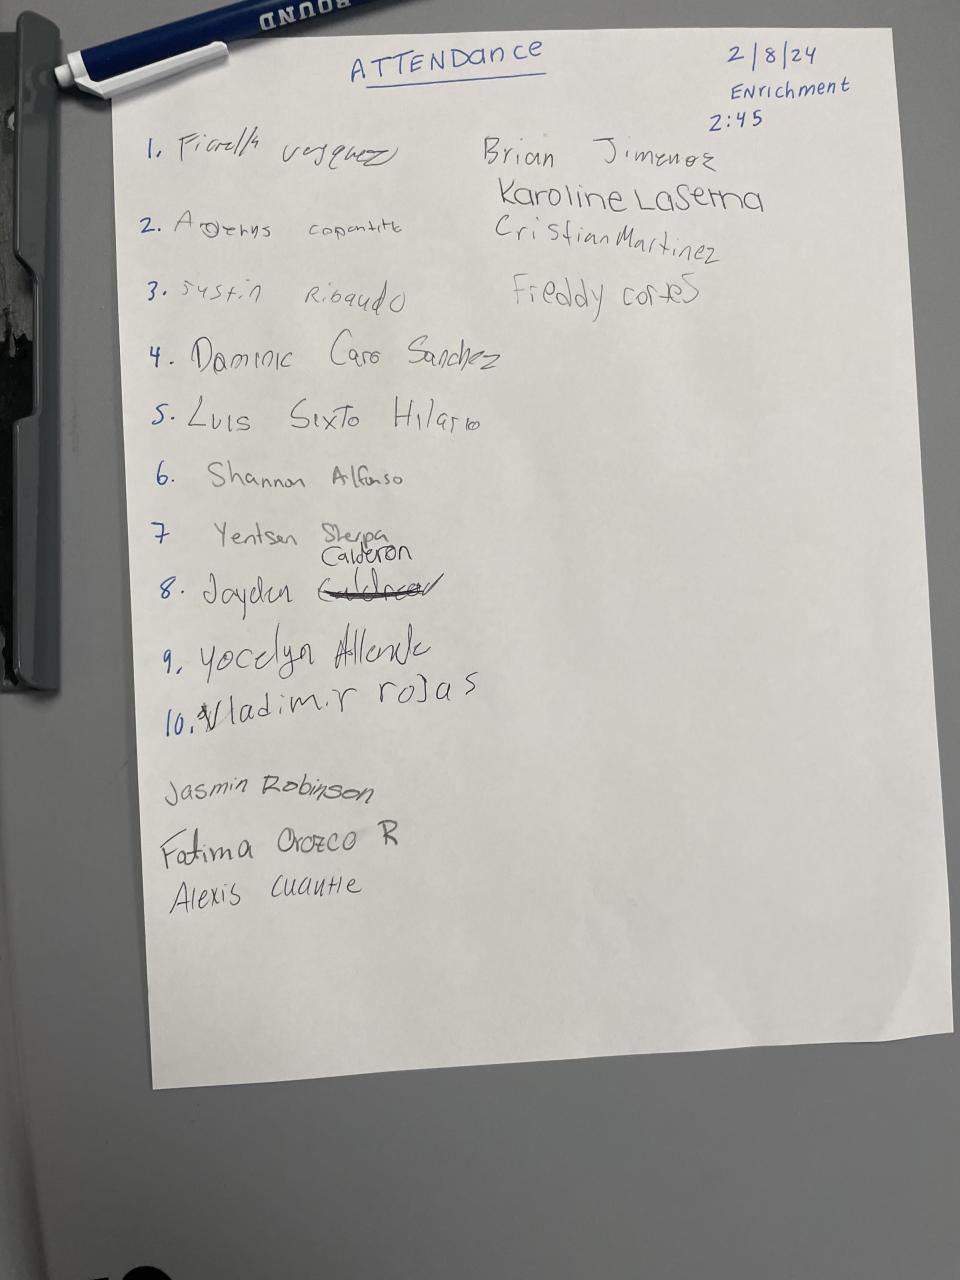 ROUND
ATTENDance
2/8/24
ENrichment
2:45
1. Fiorella vasquez
2. copantitla
3. Justin Ribaudo
4. Dominic Caro Sanchez
5. Luis Sixto Hilario
6. Shannon Alfonso
7 Yentsen Sherpa
Calderon
8. Jayden
9. Yocelyn Allende
10. Vladimir rojas
Jasmin Robinson
Fatima Orozco R
Alexis Cuautle
Brian Jimenez
Karoline LaSerna
Cristian Martinez
Freddy cortes